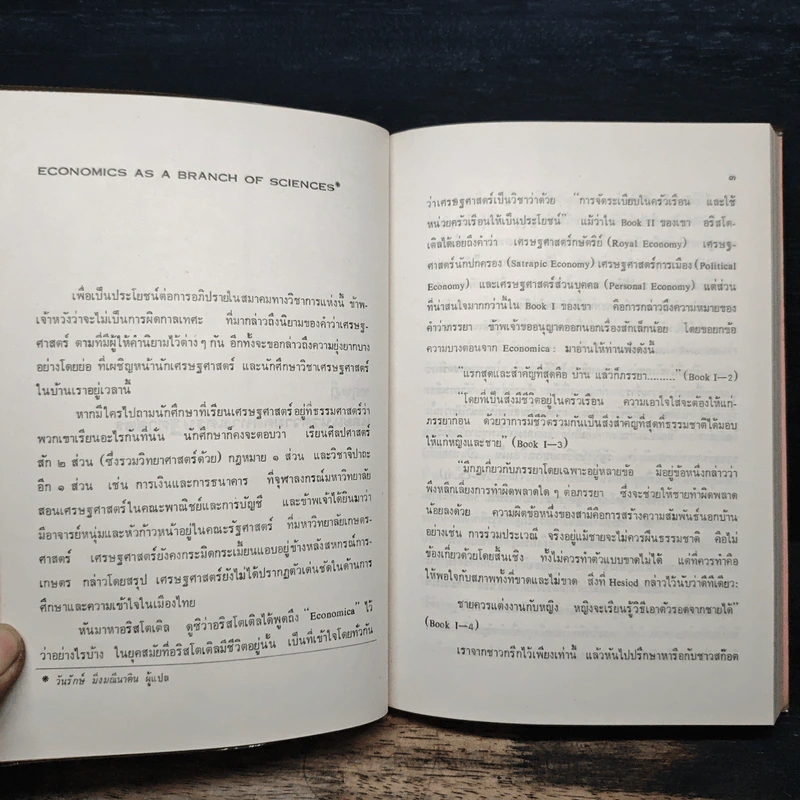 ECONOMICS AS A BRANCH OF SCIENCES*
เพื่อเป็นประโยชน์ต่อการอภิปรายในสมาคมทางวิชาการแห่งนี้ ข้าพ-
เจ้าหวังว่าจะไม่เป็นการผิดกาลเทศะ ที่มากล่าวถึงนิยามของคำว่าเศรษฐ-
ศาสตร์ ตามที่มีผู้ให้คำนิยามไว้ต่าง ๆ กัน อีกทั้งจะขอกล่าวถึงความยุ่งยากบาง
อย่างโดยย่อ ที่เผชิญหน้านักเศรษฐศาสตร์ และนักศึกษาวิชาเศรษฐศาสตร์
ในบ้านเราอยู่เวลานี้
หากมีใครไปถามนักศึกษาที่เรียนเศรษฐศาสตร์อยู่ที่ธรรมศาสตร์ว่า
พวกเขาเรียนอะไรกันที่นั่น นักศึกษาก็คงจะตอบว่า เรียนศิลปศาสตร์
สัก ๒ ส่วน (ซึ่งรวมวิทยาศาสตร์ด้วย) กฎหมาย ๑ ส่วน และวิชาจิปาถะ
อีก ๑ ส่วน เช่น การเงินและการธนาคาร ที่จุฬาลงกรณ์มหาวิทยาลัย
สอนเศรษฐศาสตร์ในคณะพาณิชย์และการบัญชี และข้าพเจ้าได้ยินมาว่า
มีอาจารย์หนุ่มและหัวก้าวหน้าอยู่ในคณะรัฐศาสตร์ ที่มหาวิทยาลัยเกษตร-
ศาสตร์ เศรษฐศาสตร์ยังคงกระมิดกระเมี้ยนแอบอยู่ข้างหลังสหกรณ์การ-
เกษตร กล่าวโดยสรุป เศรษฐศาสตร์ยังไม่ได้ปรากฏตัวเด่นชัดในด้านการ
ศึกษาและความเข้าใจในเมืองไทย
หันมาหาอริสโตเติล ดูซิว่าอริสโตเติลได้พูดถึง "Economica" ไว้
ว่าอย่างไรบ้าง ในยุคสมัยที่อริสโตเติลมีชีวิตอยู่นั้น เป็นที่เข้าใจโดยทั่วกัน
* วันรักษ์ มิ่งมณีนาคิน ผู้แปล
๓
ว่าเศรษฐศาสตร์เป็นวิชาว่าด้วย "การจัดระเบียบในครัวเรือน และใช้
หน่วยครัวเรือนให้เป็นประโยชน์" แม้ว่าใน Book II ของเขา อริสโต-
เติลได้เอ่ยถึงคำว่า เศรษฐศาสตร์กษัตริย์ (Royal Economy) เศรษฐ-
ศาสตร์นักปกครอง (Satrapic Economy) เศรษฐศาสตร์การเมือง (Political
Economy) และเศรษฐศาสตร์ส่วนบุคคล (Personal Economy) แต่ส่วน
ที่น่าสนใจมากกว่านี้ใน Book I ของเขา คือการกล่าวถึงความหมายของ
คำว่าภรรยา ข้าพเจ้าขออนุญาตออกนอกเรื่องสักเล็กน้อย โดยขอยกข้อ
ความบางตอนจาก Economica : มาอ่านให้ท่านฟังดังนี้
"แรกสุดและสำคัญที่สุดคือ บ้าน แล้วก็ภรรยา........." (Book I—2)
"โดยที่เป็นสิ่งมีชีวิตอยู่ในครัวเรือน ความเอาใจใส่จะต้องให้แก่-
ภรรยาก่อน ด้วยว่าการมีชีวิตร่วมกันเป็นสิ่งสำคัญที่สุดที่ธรรมชาติได้มอบ
ให้แก่หญิงและชาย" (Book I—3)
"มีกฎเกี่ยวกับภรรยาโดยเฉพาะอยู่หลายข้อ มีอยู่ข้อหนึ่งกล่าวว่า
พึงหลีกเลี่ยงการทำผิดพลาดใด ๆ ต่อภรรยา ซึ่งจะช่วยให้ชายทำผิดพลาด
น้อยลงด้วย ความผิดข้อหนึ่งของสามีคือการสร้างความสัมพันธ์นอกบ้าน
อย่างเช่น การร่วมประเวณี จริงอยู่แม้ชายจะไม่ควรฝืนธรรมชาติ คือไม่
ข้องเกี่ยวด้วยโดยสิ้นเชิง ทั้งไม่ควรทำตัวแบบขาดไม่ได้ แต่ที่ควรทำคือ
ให้พอใจกับสภาพทั้งที่ขาดและไม่ขาด สิ่งที่ Hesiod กล่าวไว้นับว่าดีทีเดียว:
ชายควรแต่งงานกับหญิง หญิงจะเรียนรู้วิธีเอาตัวรอดจากชายได้"
(Book I—4)
เราจากชาวกรีกไว้เพียงเท่านี้ แล้วหันไปปรึกษาหารือกับชาวสก๊อต